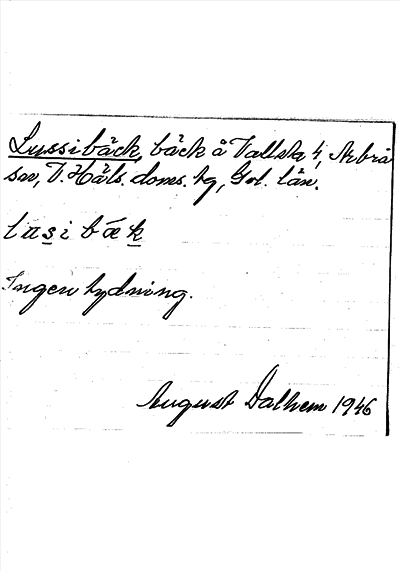 Lussibäck, bäck å Vallsta 4, Arbrå
sn, V. Häls. doms. hg, Gvl. län.
lusibæk
Ingen tydning.
August Dalhem 1946